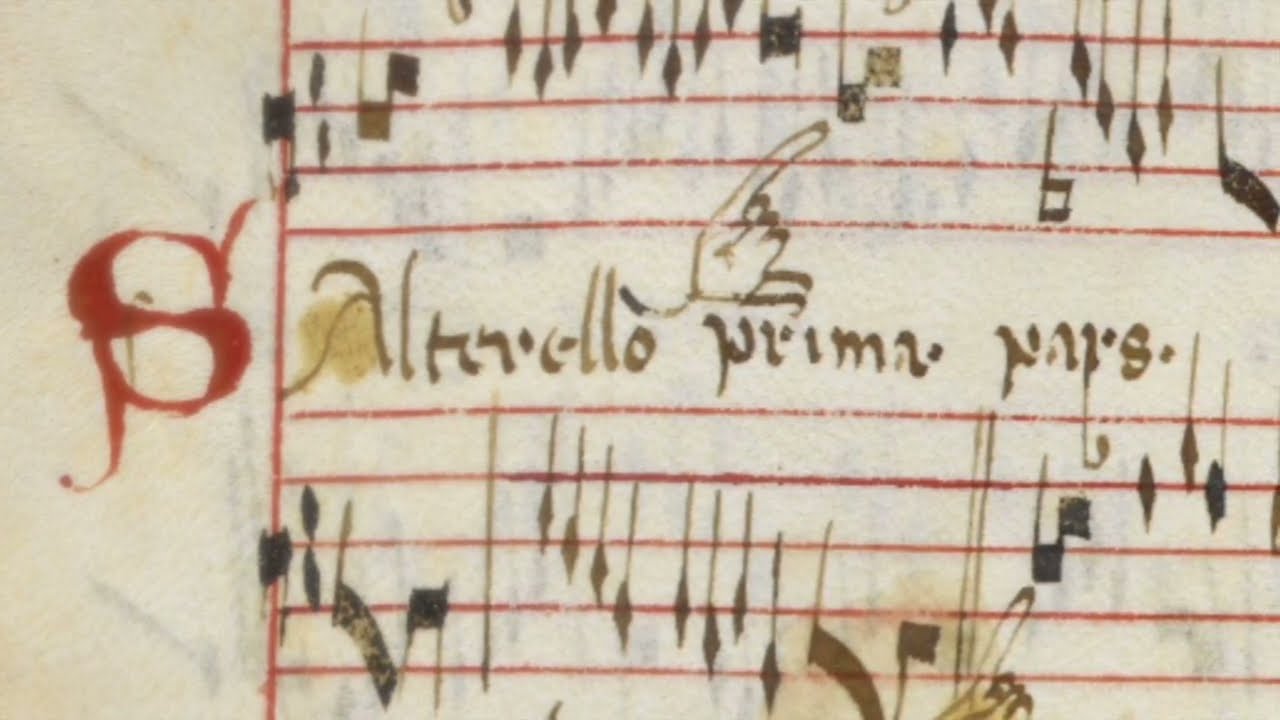 SAlterello prima pars.